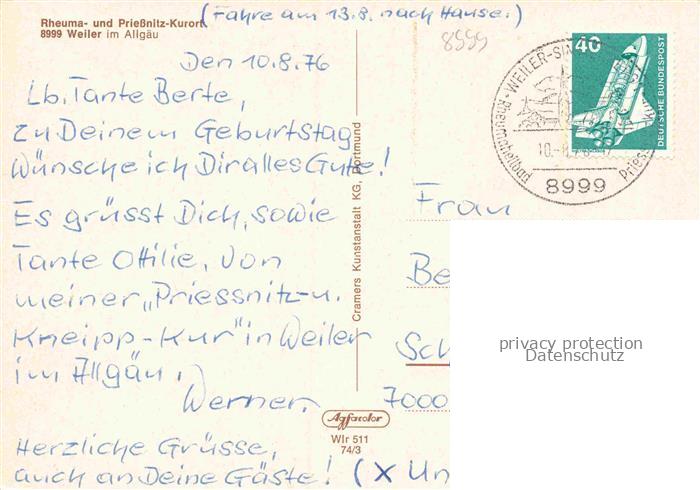 (Fahre am 13.8. nach Hause.)
Rheuma- und Prießnitz-Kurort
8999 Weiler im Allgäu
8999
Den 10.8.76
Lb. Tante Berte,
zu Deinem Geburtstag
wünsche ich Dir alles Gute!
Es grüsst Dich, sowie
Tante Ottilie, von
meiner „Priessnitz-u.
Kneipp-Kur" in Weiler
im Allgäu,
Werner.
Herzliche Grüsse,
auch an Deine Gäste! (X Un
Cramers Kunstanstalt KG, Dortmund
Agfacolor
WIr 511
74/3
40
DEUTSCHE BUNDESPOST
WEILER-SIM
8999
Frau
Be
Sch
7000
privacy protection
Datenschutz